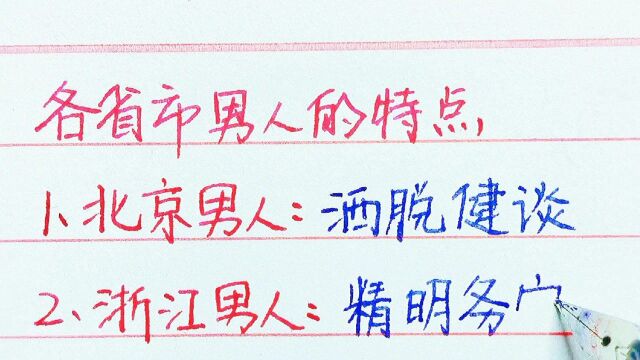 各省市男人的特点
1、北京男人：洒脱健谈
2、浙江男人：精明务